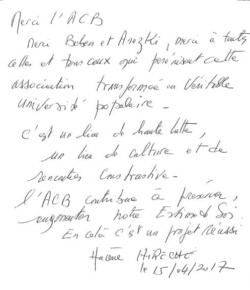 Merci l'ACB
Merci Boben et Arezki, merci à toutes
celles et tous ceux qui pérénisent cette
association transformée en Véritable
Université populaire -
C'est un lieu de haute lutte,
un lieu de culture et de
rencontres constructive -
l'ACB contribue à préserver,
augmenter notre Estime de Soi
En celà c'est un projet réussi
Hacène HIRECHE
le 15/04/2017